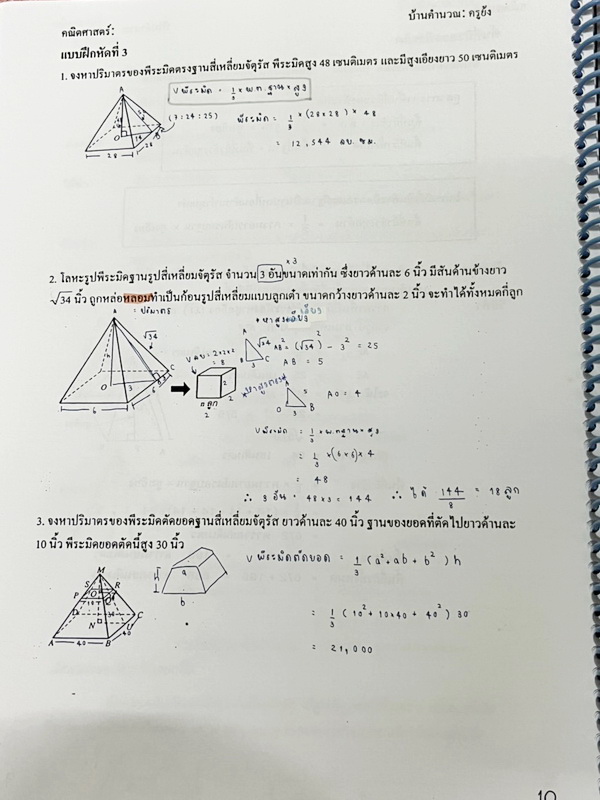 คณิตศาสตร์:
บ้านคำนวณ: ครูยัง
แบบฝึกหัดที่ 3
1. จงหาปริมาตรของพีระมิดตรงฐานสี่เหลี่ยมจัตุรัส พีระมิดสูง 48 เซนติเมตร และมีสูงเอียงยาว 50 เซนติเมตร
V พีระมิด = 1/3 × พ.ท. ฐาน × สูง
(7:24:25)
พีระมิด = 1/3 × (28×28) × 48
= 12,544 ลบ. ซม.
A
O
B
14
28
28
× 3
2. โลหะรูปพีระมิดฐานรูปสี่เหลี่ยมจัตุรัส จำนวน 3 อันขนาดเท่ากัน ซึ่งยาวด้านละ 6 นิ้ว มีสันด้านข้างยาว
√34 นิ้ว ถูกหล่อหลอมทำเป็นก้อนรูปสี่เหลี่ยมแบบลูกเต๋า ขนาดกว้างยาวด้านละ 2 นิ้ว จะทำได้ทั้งหมดกี่ลูก
= ปริมาตร
* หาสูงเอียง
A
√34
O
3
C
6
6
V ลบ. = 2×2×2
= 8
2
2
2
กี่ลูก
A
√34
B
3
C
AB² = (√34)² - 3² = 25
AB = 5
* หาสูงตรง
A
5
O
B
AO = 4
V พีระมิด = 1/3 × พ.ท.ฐาน × สูง
= 1/3 × (6×6) × 4
= 48
∴ 3 อัน = 48 × 3 = 144 ∴ ได้ 144/8 = 18 ลูก
3. จงหาปริมาตรของพีระมิดตัดยอดฐานสี่เหลี่ยมจัตุรัส ยาวด้านละ 40 นิ้ว ฐานของยอดที่ตัดไปยาวด้านละ
10 นิ้ว พีระมิดยอดตัดนี้สูง 30 นิ้ว
V พีระมิดตัดยอด = 1/3 (a² + ab + b²) h
= 1/3 (10² + 10×40 + 40²) 30
= 21,000
M
S
R
P
O
Q
10
D
C
N
U
A
B
40
40
a
h
b
10